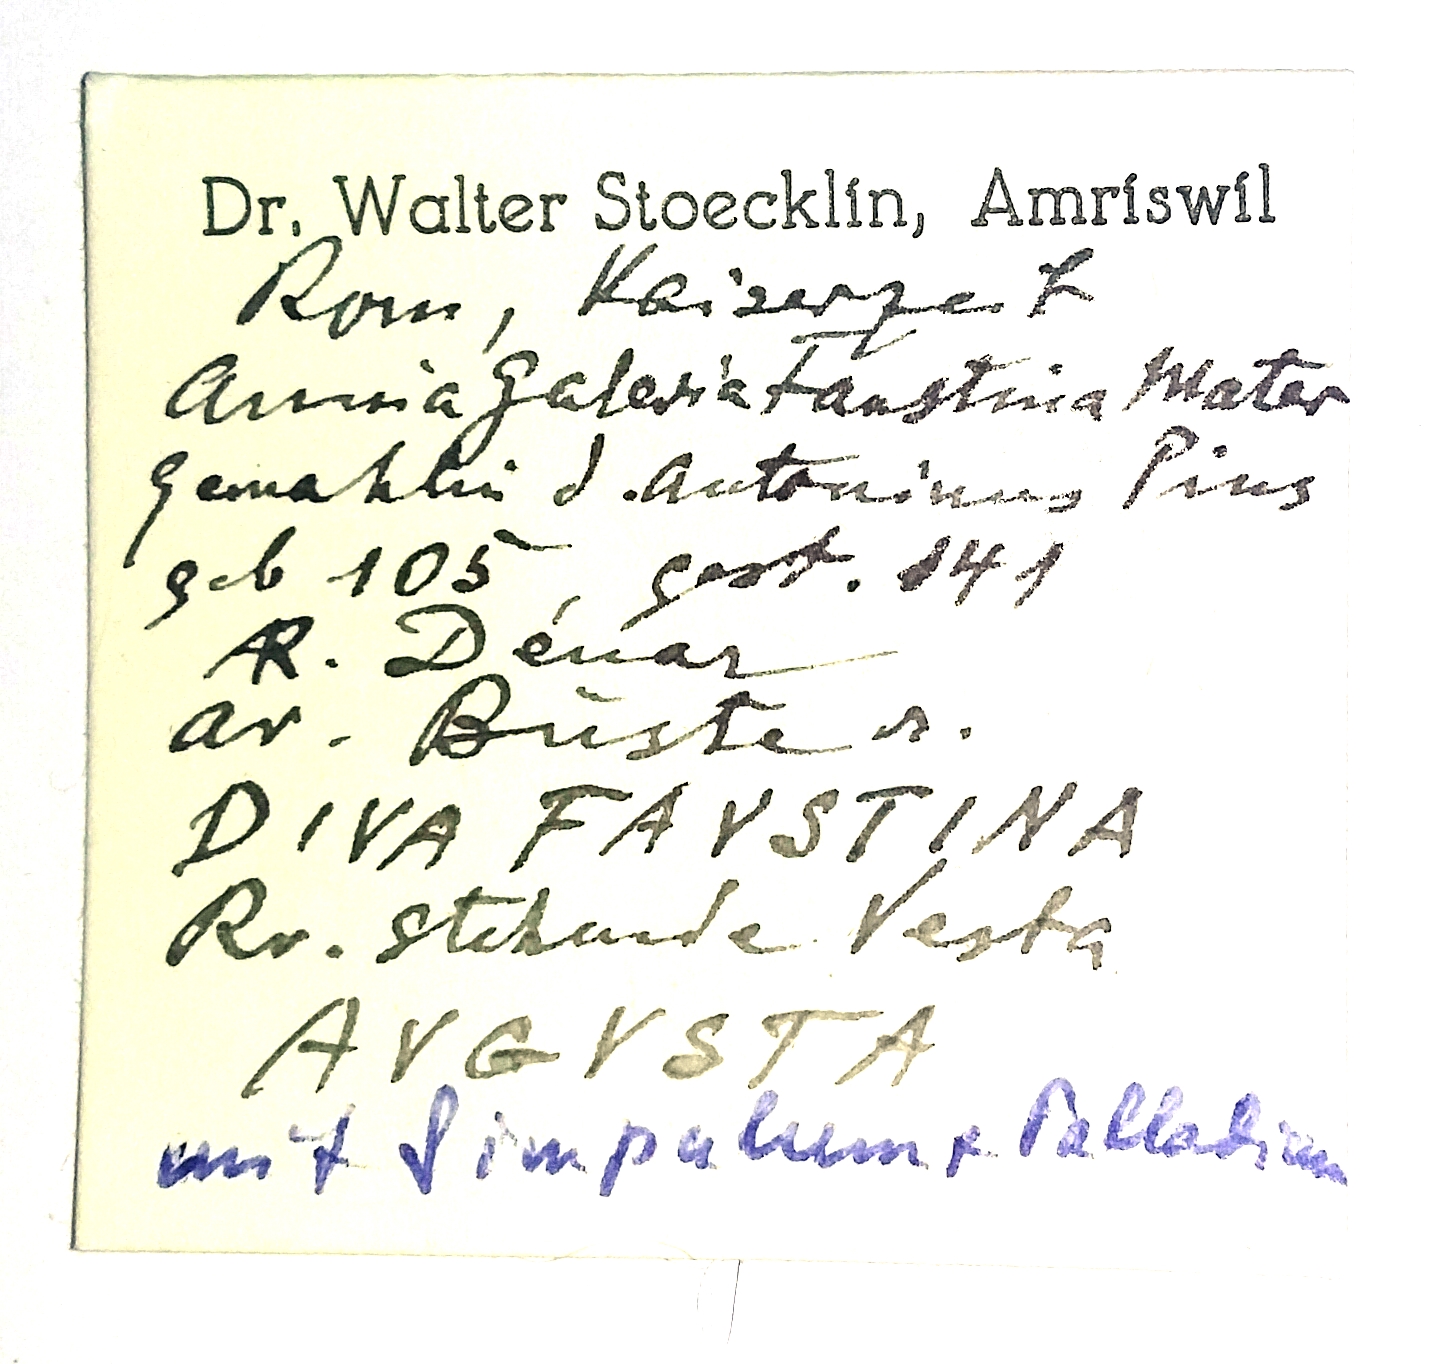 Dr. Walter Stoecklin, Amriswil
Rom, Kaiserzeit
Annia Galeria Faustina Mater
Gemahlin d. Antoninus Pius
geb 105, gest. 141
AR. Denar
Av. Büste r.
DIVA FAVSTINA
Rv. stehende Vesta
AVGVSTA
mit Simpulum + Palladium